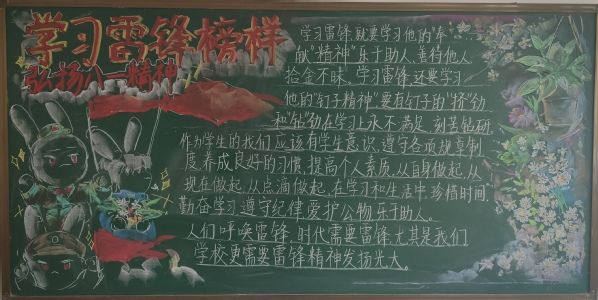 学习雷锋榜样
弘扬八一精神
学习雷锋,就要学习他的"奉
献"精神"乐于助人,善待他人,
拾金不昧,学习雷锋还要学习
他的"钉子精神"要有钉子的"挤"劲
和"钻"劲在学习上永不满足,刻苦钻研,
作为学生的我们,应该有学生意识,遵守各项规章制
度,养成良好的习惯,提高个人素质,从自身做起,从
现在做起,从点滴做起,在学习和生活中,珍惜时间,
勤奋学习,遵守纪律,爱护公物,乐于助人。
人们呼唤雷锋,时代需要雷锋,尤其是我们
学校更需要雷锋精神发扬光大。